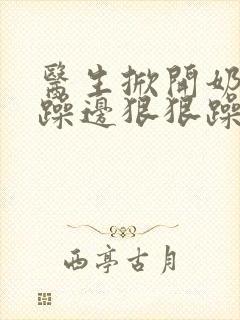 醫生掀開奶
躁邊狠狠躁
西亭古月